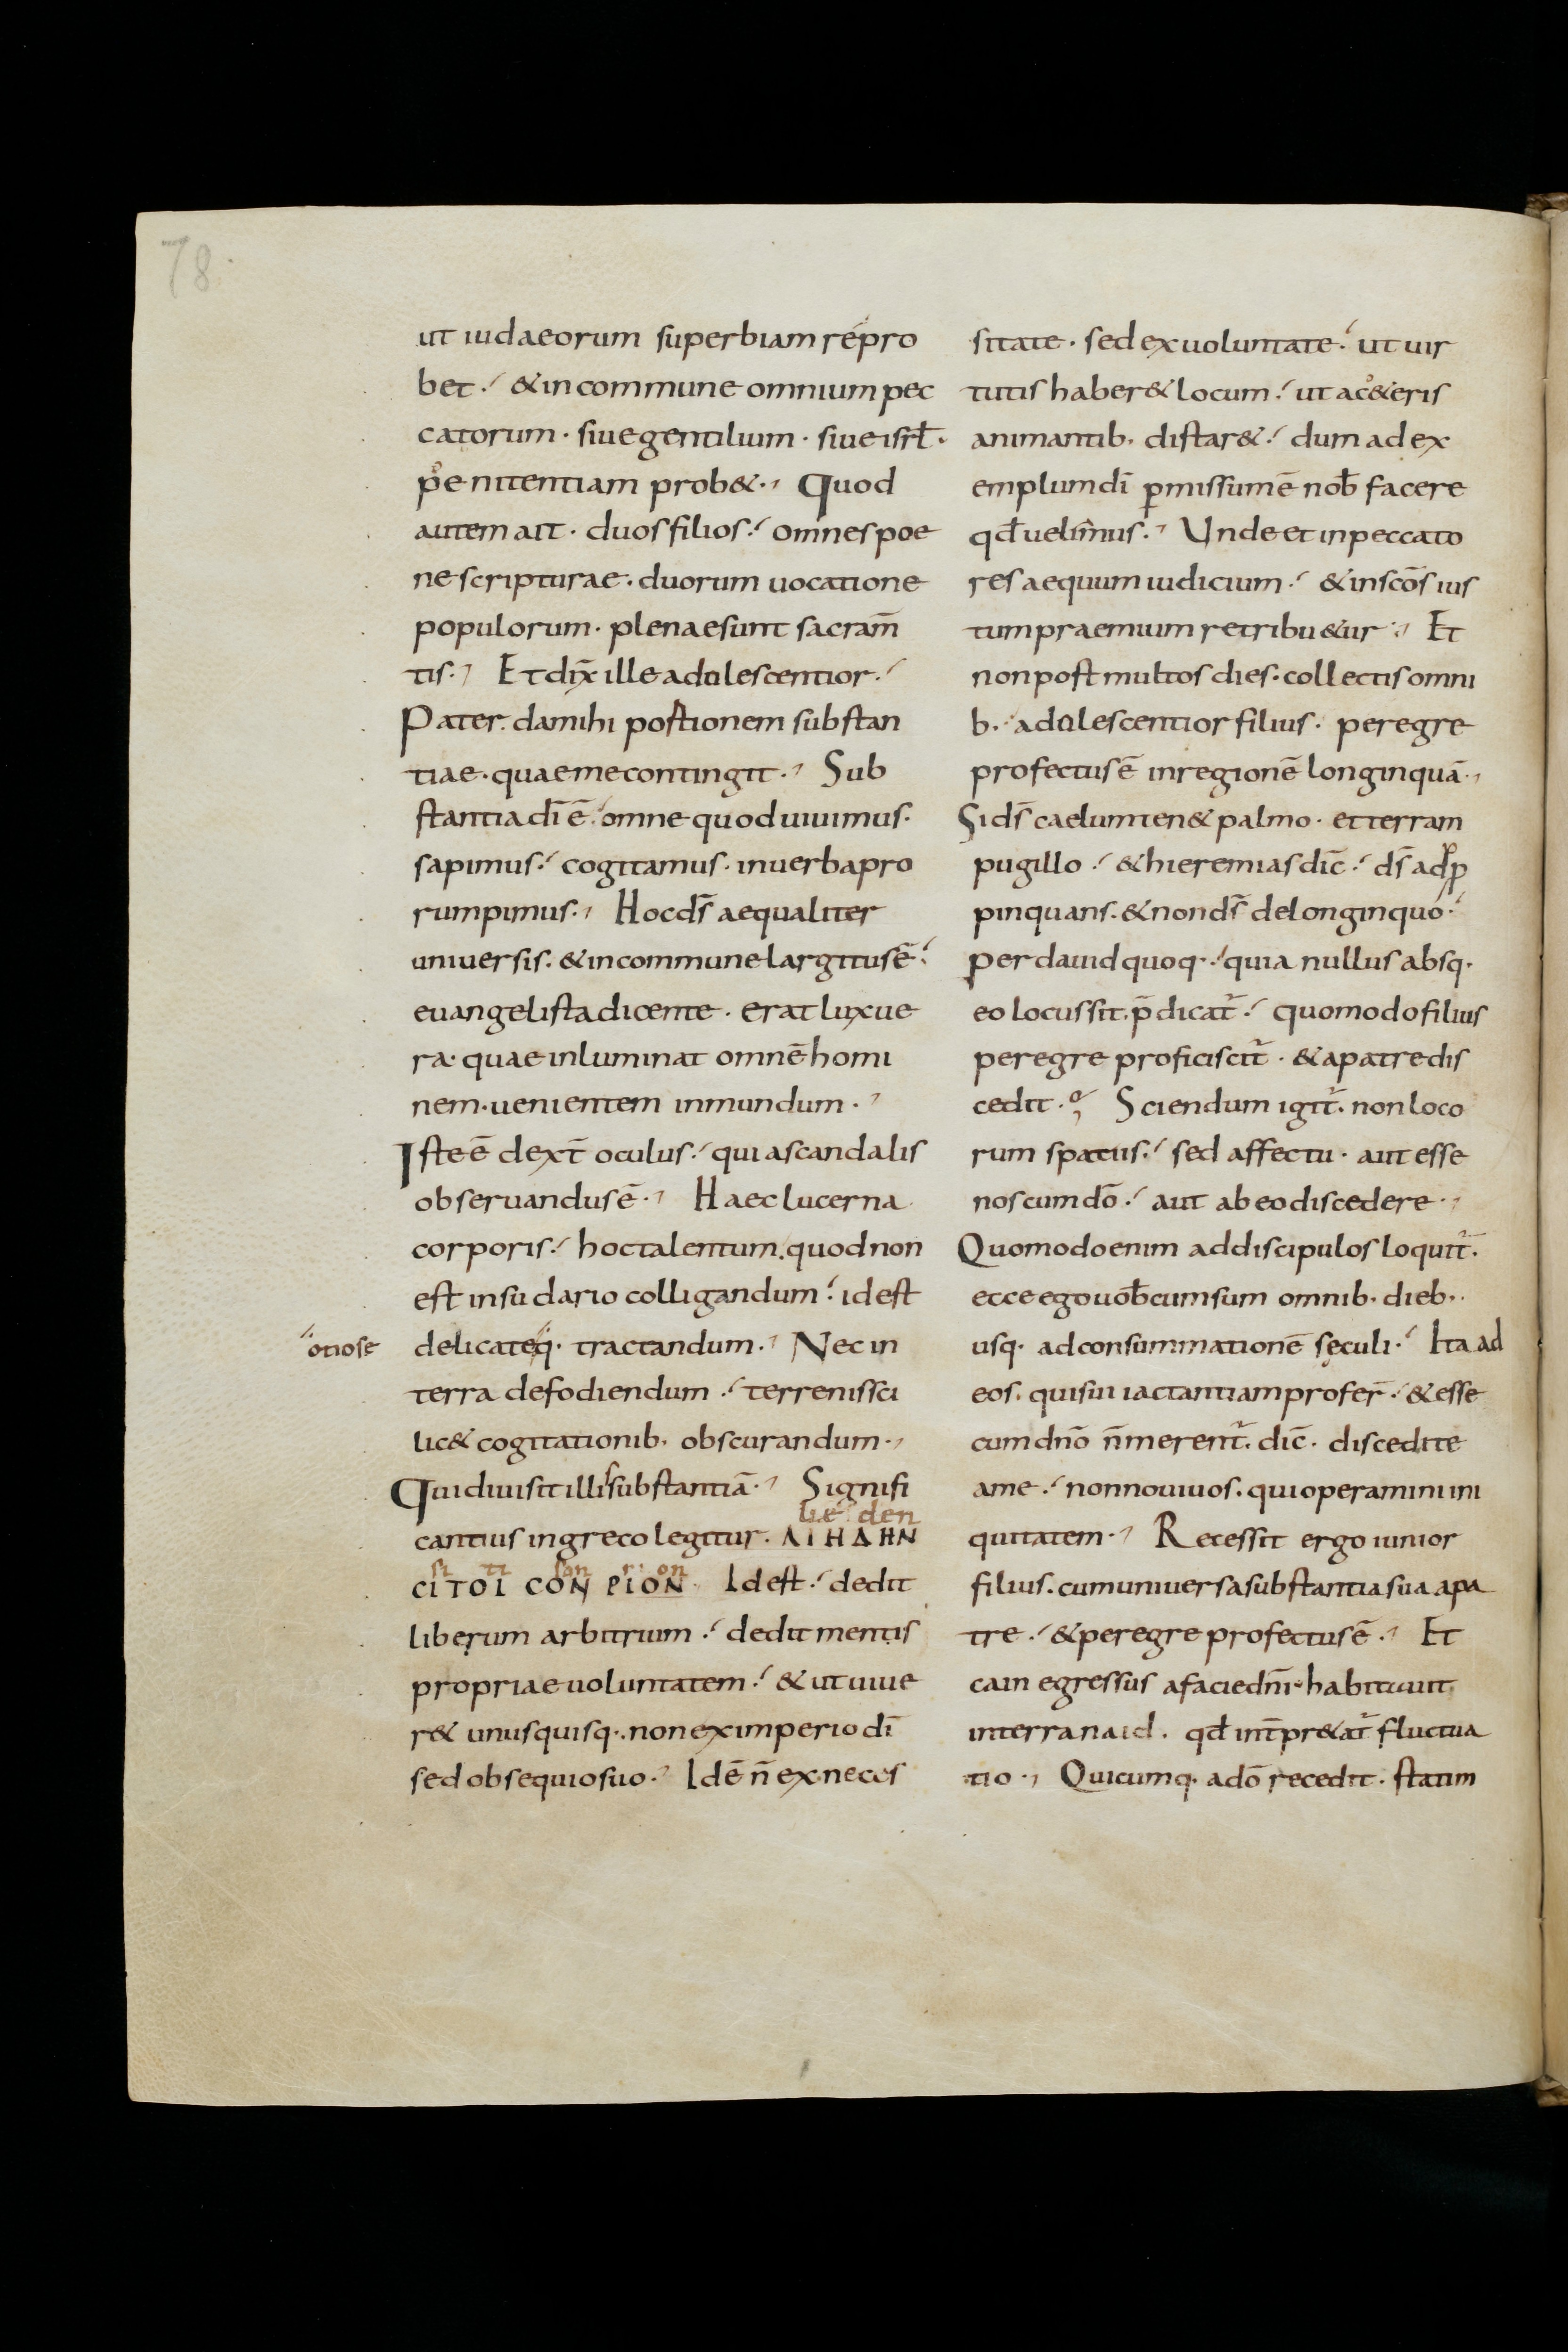 78.
ut iudaeorum superbiam repro
bet. & in commune omnium pec
catorum · siue gentilium · siue isrł ·
pͦenitentiam prob& ·, Quod
autem ait · duos filios. omnes poe
ne scripturae · duorum uocatione
populorum · plenae sunt sacram̄
tis ·, Et dix̄ ille adulescentior.
Pater. da mihi portionem substan
tiae · quae me contingit ·, Sub
stantia dī ē. omne quod uiuimus ·
sapimus. cogitamus · in uerba pro
rumpimus ·, Hoc ds̄ aequaliter
uniuersis. & in commune largitus ē.
euangelista dicente · erat lux ue
ra · quae inluminat omnē homi
nem · uenientem in mundum ·,
Iste ē dext̄ oculus. qui a scandalis
obseruandus ē ·, Haec lucerna
corporis. hoc talentum. quod non
est in sudario colligandum. id est
otiose
delicate q· tractandum ·, Nec in
terra defodiendum. terrenis sci
lic& cogitationib· obscurandum ·,
Qui diuisit illis substantiā ·, Signifi
lie den
cantius in greco legitur · ΛΙΗΔΗΝ
si ti son ri on
CΙΤΟΙ CΟΝ ΡΙΟΝ · Id est. dedit
liberum arbitrium. dedit mentis
propriae uoluntatem. & ut uiue
r& unusquisq·. non ex imperio dī
sed obsequio suo ·, Id ē n̄ ex neces
sitate · sed ex uoluntate. ut uir
tutis haber& locum. ut a c&eris
animantib· distar&. dum ad ex
emplum dī ꝑmissum ē nob̄ facere
qd̄ uelimus ·, Unde et in peccato
res aequum iudicium. & in scōs ius
tum praemium retribu&ur ·, Et
non post multos dies · collectis omni
b· adulescentior filius · peregre
profectus ē in regionē longinquā ·,
Si ds̄ caelum ten& palmo · et terram
pugillo. & hieremias dīc. ds̄ adpͦp
pinquans. & non ds̄ de longinquo.
per dauid quoq·. quia nullus absq·
eo locus sit. p̄dicat᷑. quomodo filius
peregre proficiscit᷑ · & a patre dis
cedit · Sciendum igit᷑. non loco
rum spatiis. sed affectu · aut esse
nos cum dō. aut ab eo discedere ·,
Quomodo enim ad discipulos loquit᷑.
ecce ego uob̄cum sum omnib· dieb·
usq· ad consummationē sęculi. Ita ad
eos. qui sui iactantiam profer̄. & esse
cum dnō n̄ merent᷑. dīc · discedite
a me. non noui uos. qui operamini ini
quitatem ·, Recessit ergo iunior
filius. cum uniuersa substantia sua a pa
tre. & peregre profectus ē ·, Et
cain egressus a facie dnī · habitauit
in terra naid · qd̄ int̄pr&at᷑ fluctua
tio ·, Quicumq· a dō recedit · statim